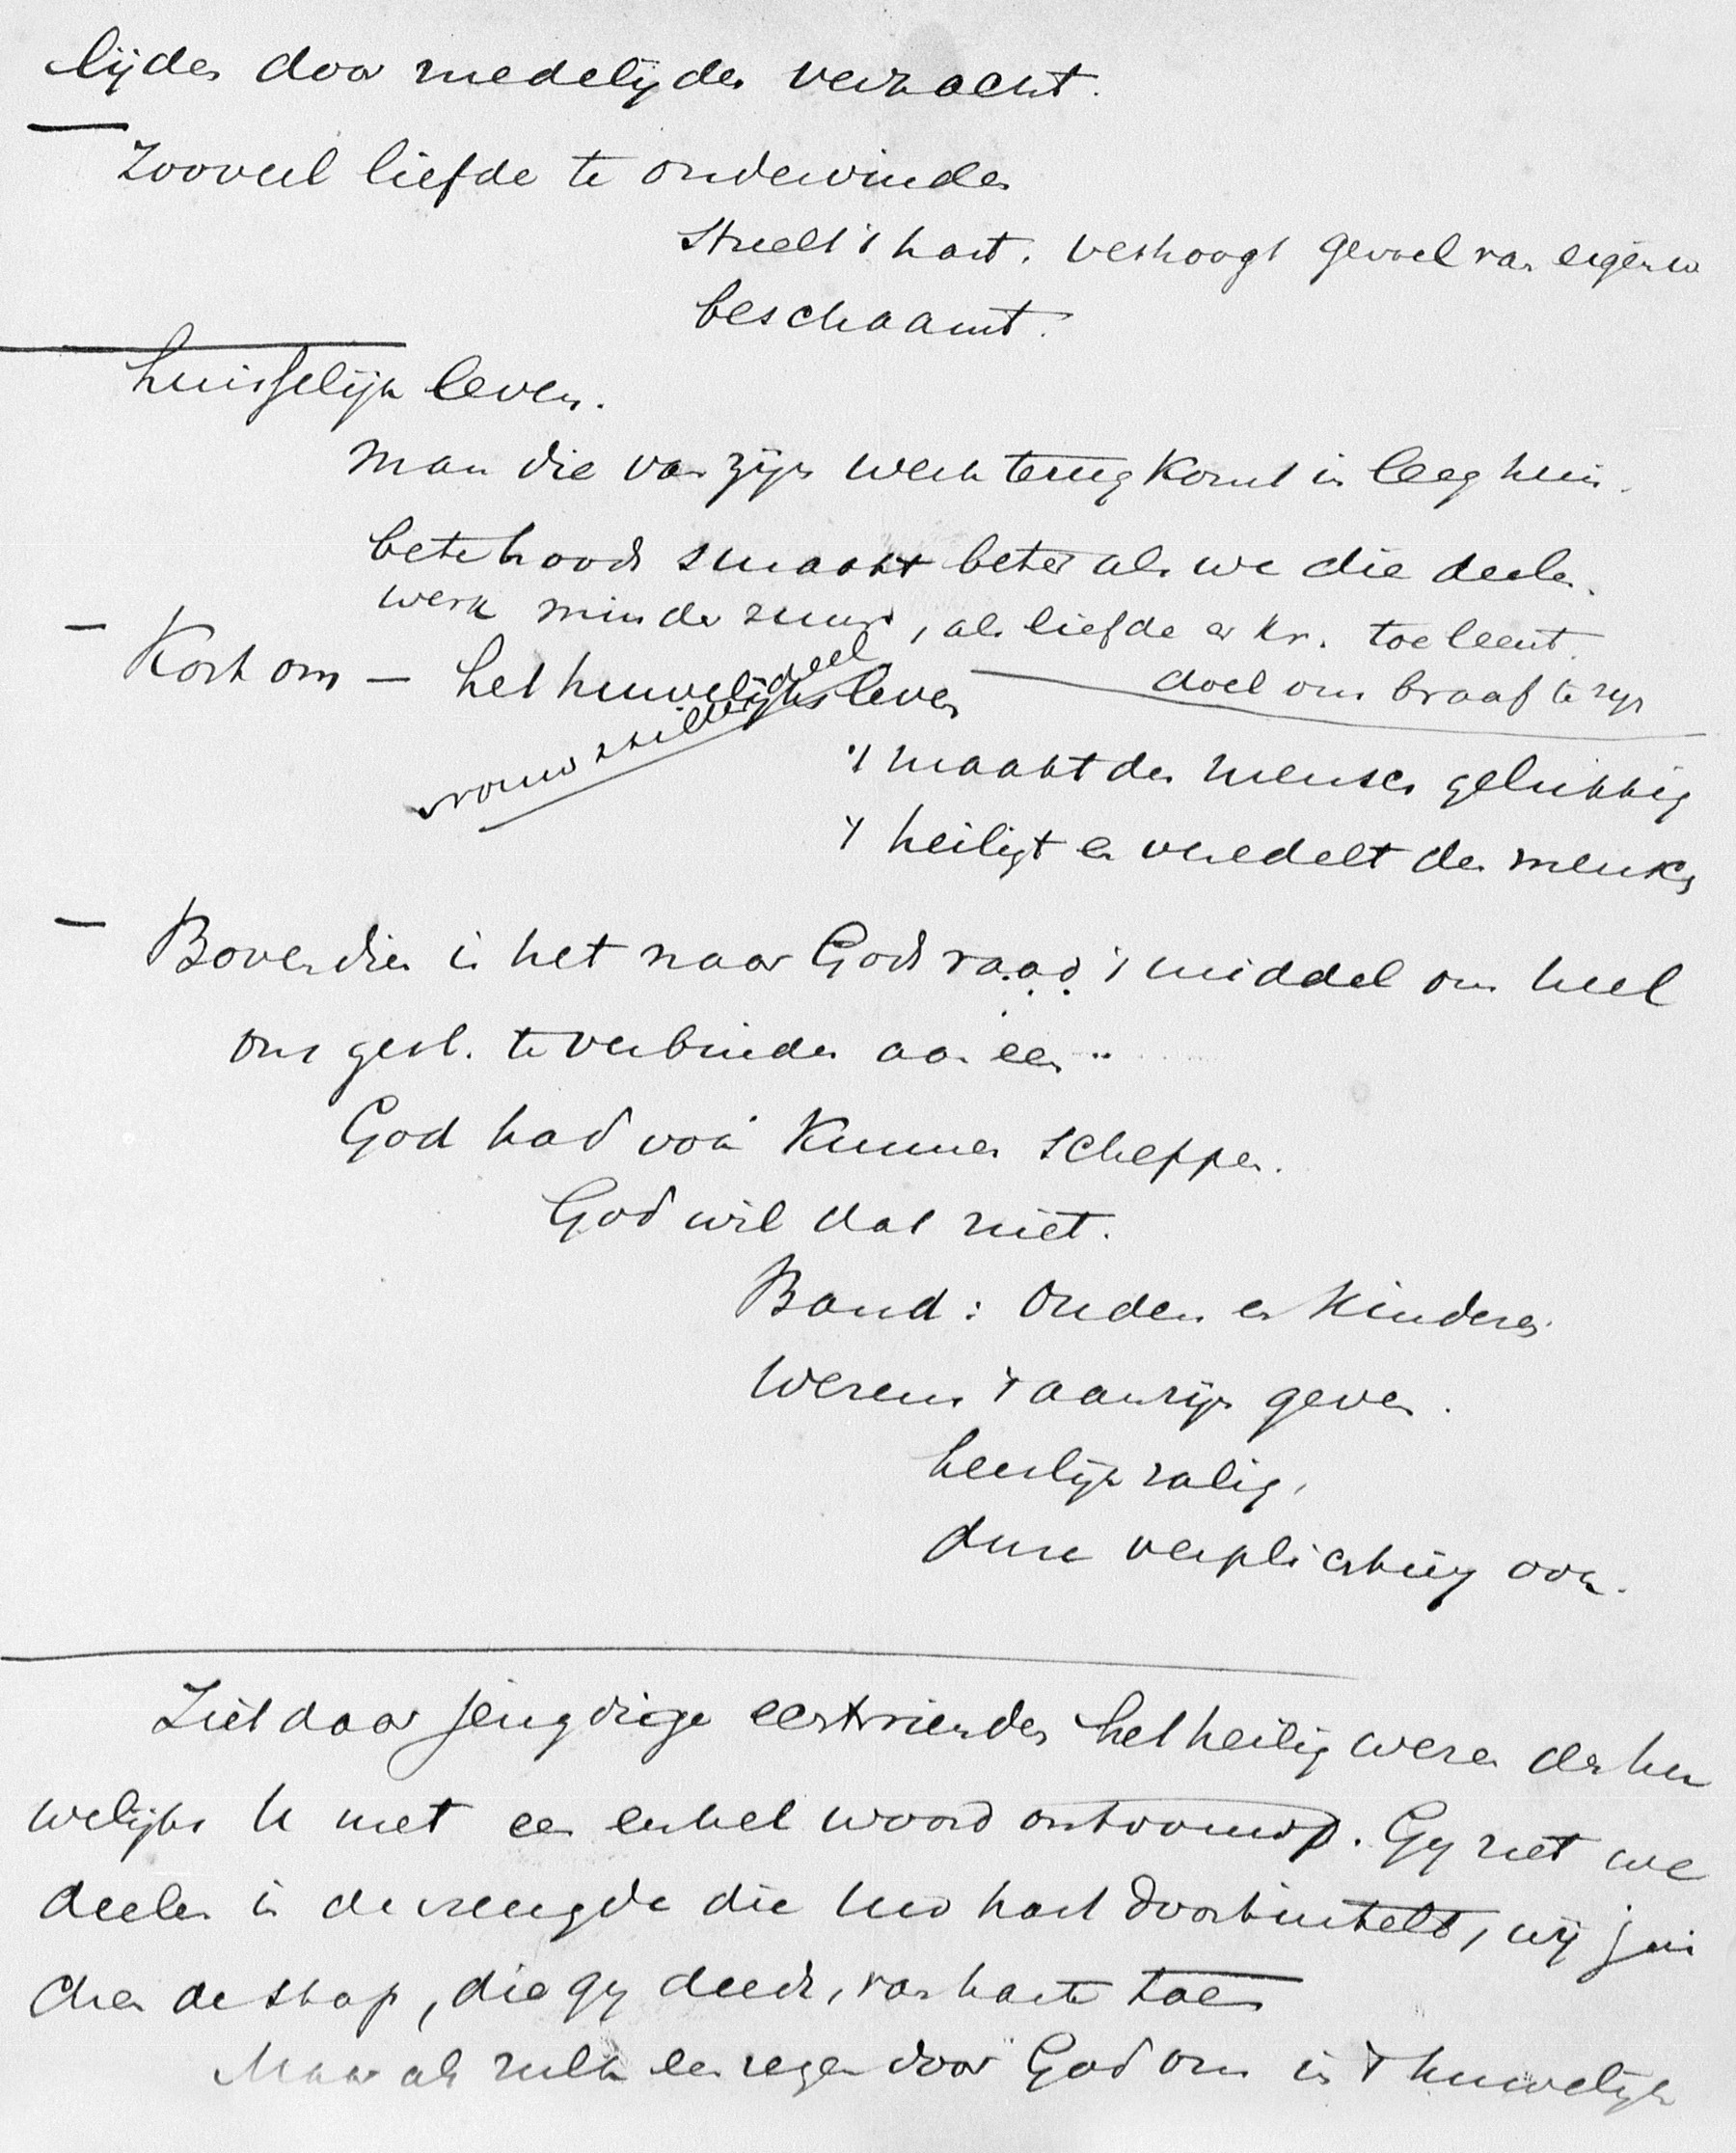 lijden door medelijden verzacht.
— Zooveel liefde te ondervinden
streelt 't hart. verhoogt gevoel van eigenw
beschaamt.
huisselijk leven.
Man die van zijn werk terug komt in leeg huis.
bete broods smaakt beter als we die deelen.
werk minder zuur, als liefde er kr. toe leent.
— Kortom — het huwelijksleven
doel om braaf te zijn
't maakt den menschen gelukkig
't heiligt en veredelt den mensch
— Bovendien is het naar Gods raad 't middel om heel
ons gesl. te verbinden aaneen..
God had zóó kunnen scheppen.
God wil dat niet.
Band: Ouders en Kinderen.
Wezens 't aanzijn geven.
heerlijk zalig,
dure verplichting ook.
Ziet daar jeugdige echtvrienden het heilig wezen des hu
welijks U met een enkel woord ontvouwd. Gij ziet we
deelen in de vreugde die Uw hart doortintelt, wij jui
chen de stap, die gij deedt, van harte toe
Maar als zulk een zegen door God ons in 't huwelijk